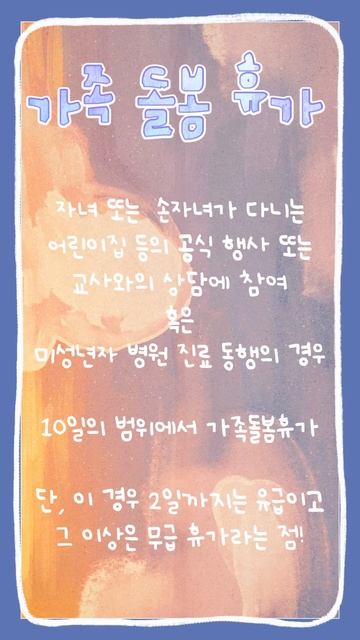 가족 돌봄 휴가
자녀 또는 손자녀가 다니는
어린이집 등의 공식 행사 또는
교사와의 상담에 참여
혹은
미성년자 병원 진료 동행의 경우
10일의 범위에서 가족돌봄휴가
단, 이 경우 2일까지는 유급이고
그 이상은 무급 휴가라는 점!